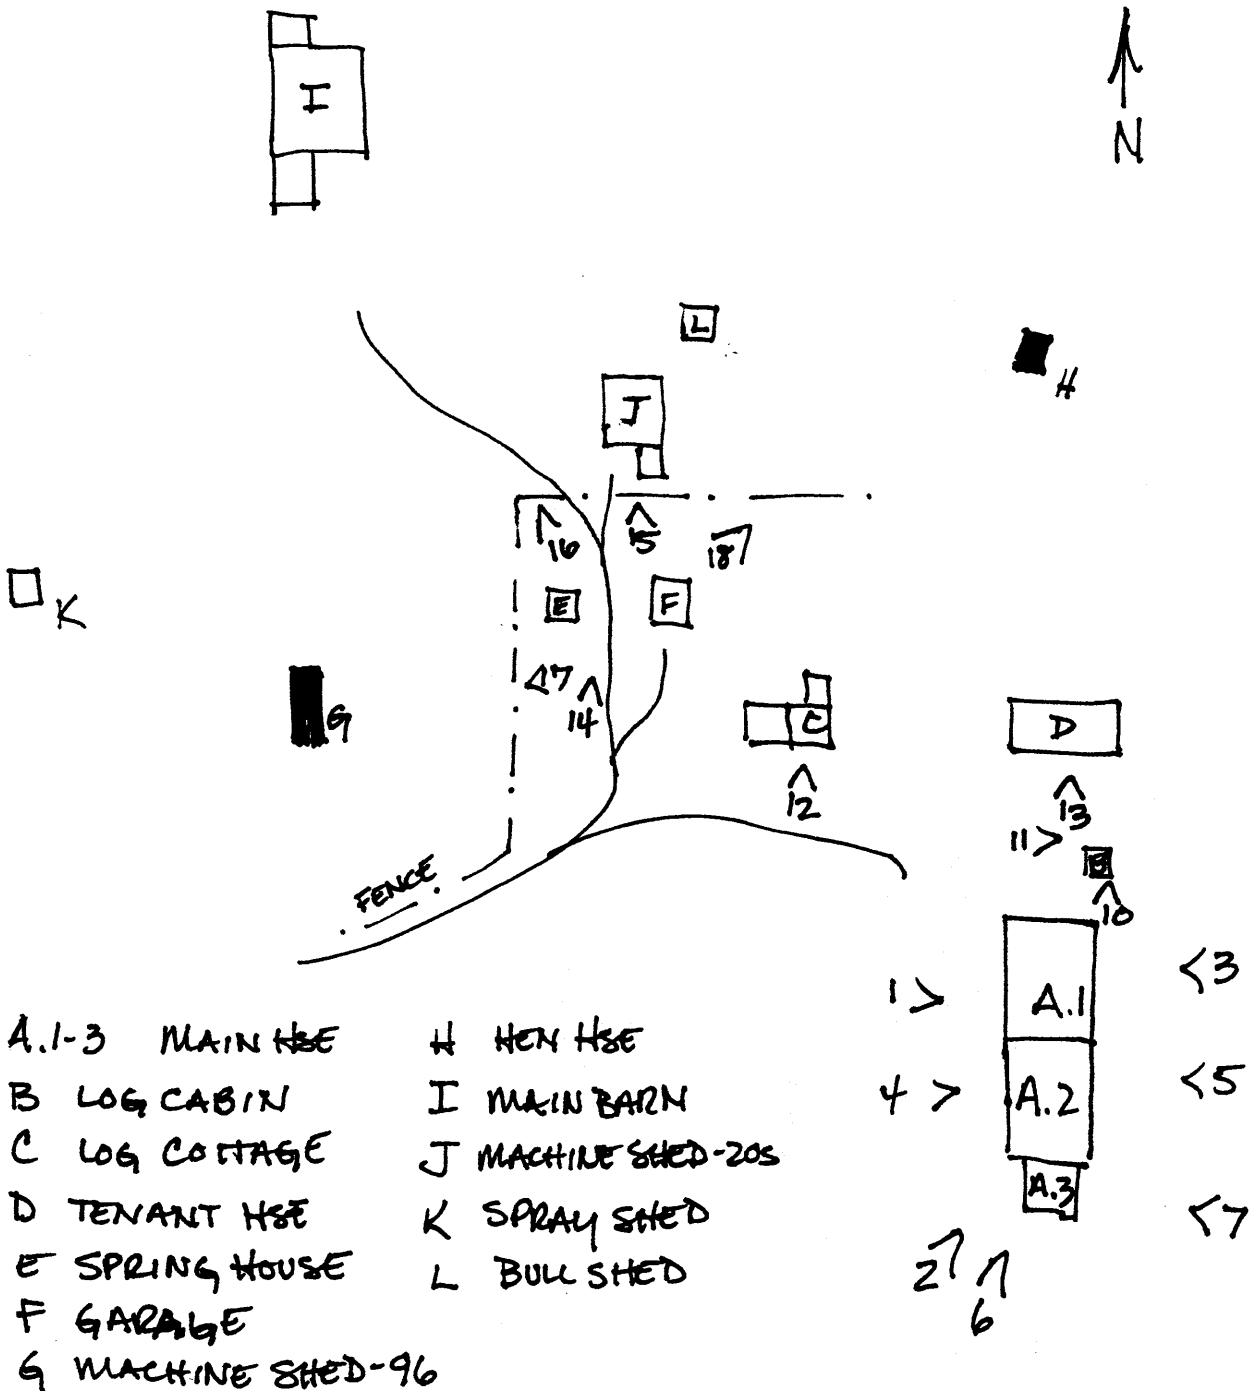 I
N
L
H
J
16
15
18
K
E
F
17
G
14
C
D
12
13
11
B
10
FENCE
1
A.1
3
4
A.2
5
A.3
7
2
6
A.1-3 MAIN HSE
B LOG CABIN
C LOG COTTAGE
D TENANT HSE
E SPRING HOUSE
F GARAGE
G MACHINE SHED-96
H HEN HSE
I MAIN BARN
J MACHINE SHED-20s
K SPRAY SHED
L BULL SHED